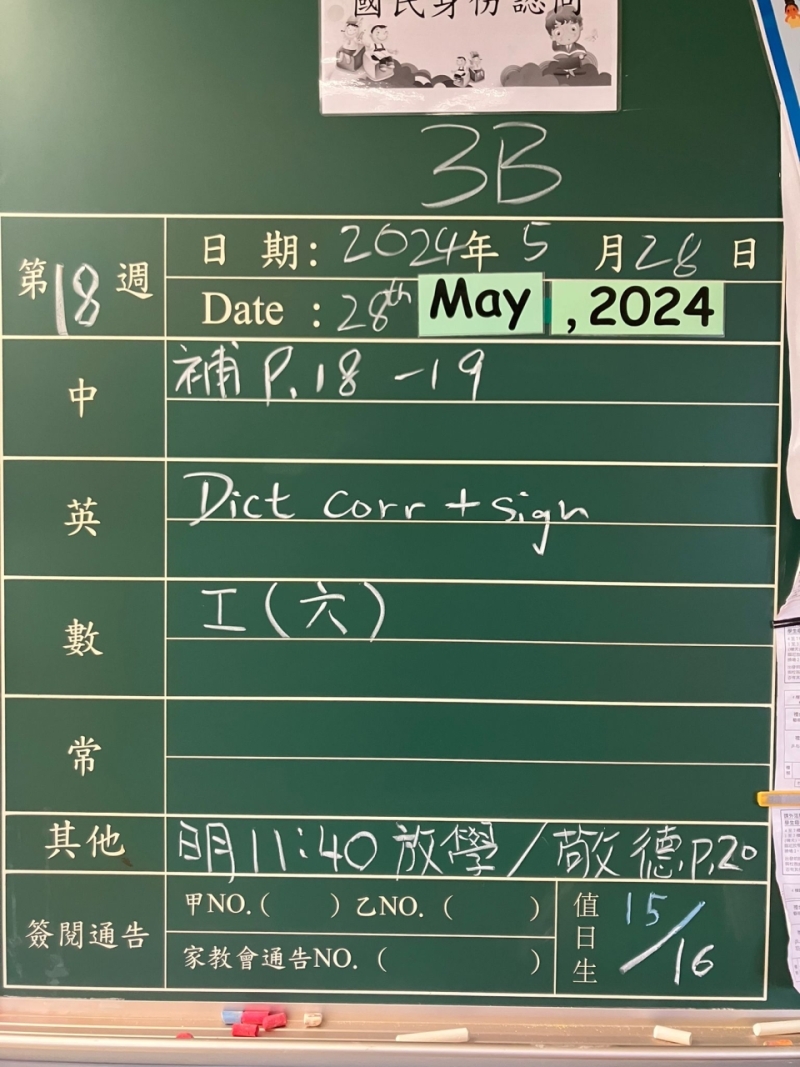 國民身份認同
3B
第18週
日期：2024年5月28日
Date : 28th May , 2024
中
補 P.18-19
英
Dict corr + sign
數
工(六)
常
其他
明11:40放學/敬德P.20
簽閱通告
甲NO.(      )乙NO. (      )
家教會通告NO. (      )
值日生
15/16